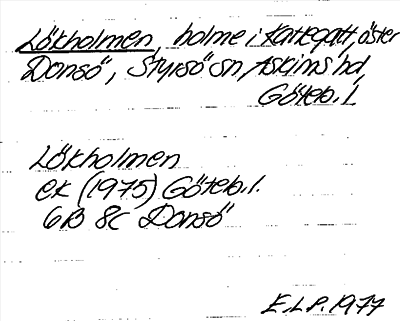 Lökholmen, holme i Kattegatt, öster
Donsö, Styrsö sn, Askims hd,
Göteb. l.
Lökholmen
ek (1975) Göteb. l.
6B 8C Donsö
E.L.P. 1977